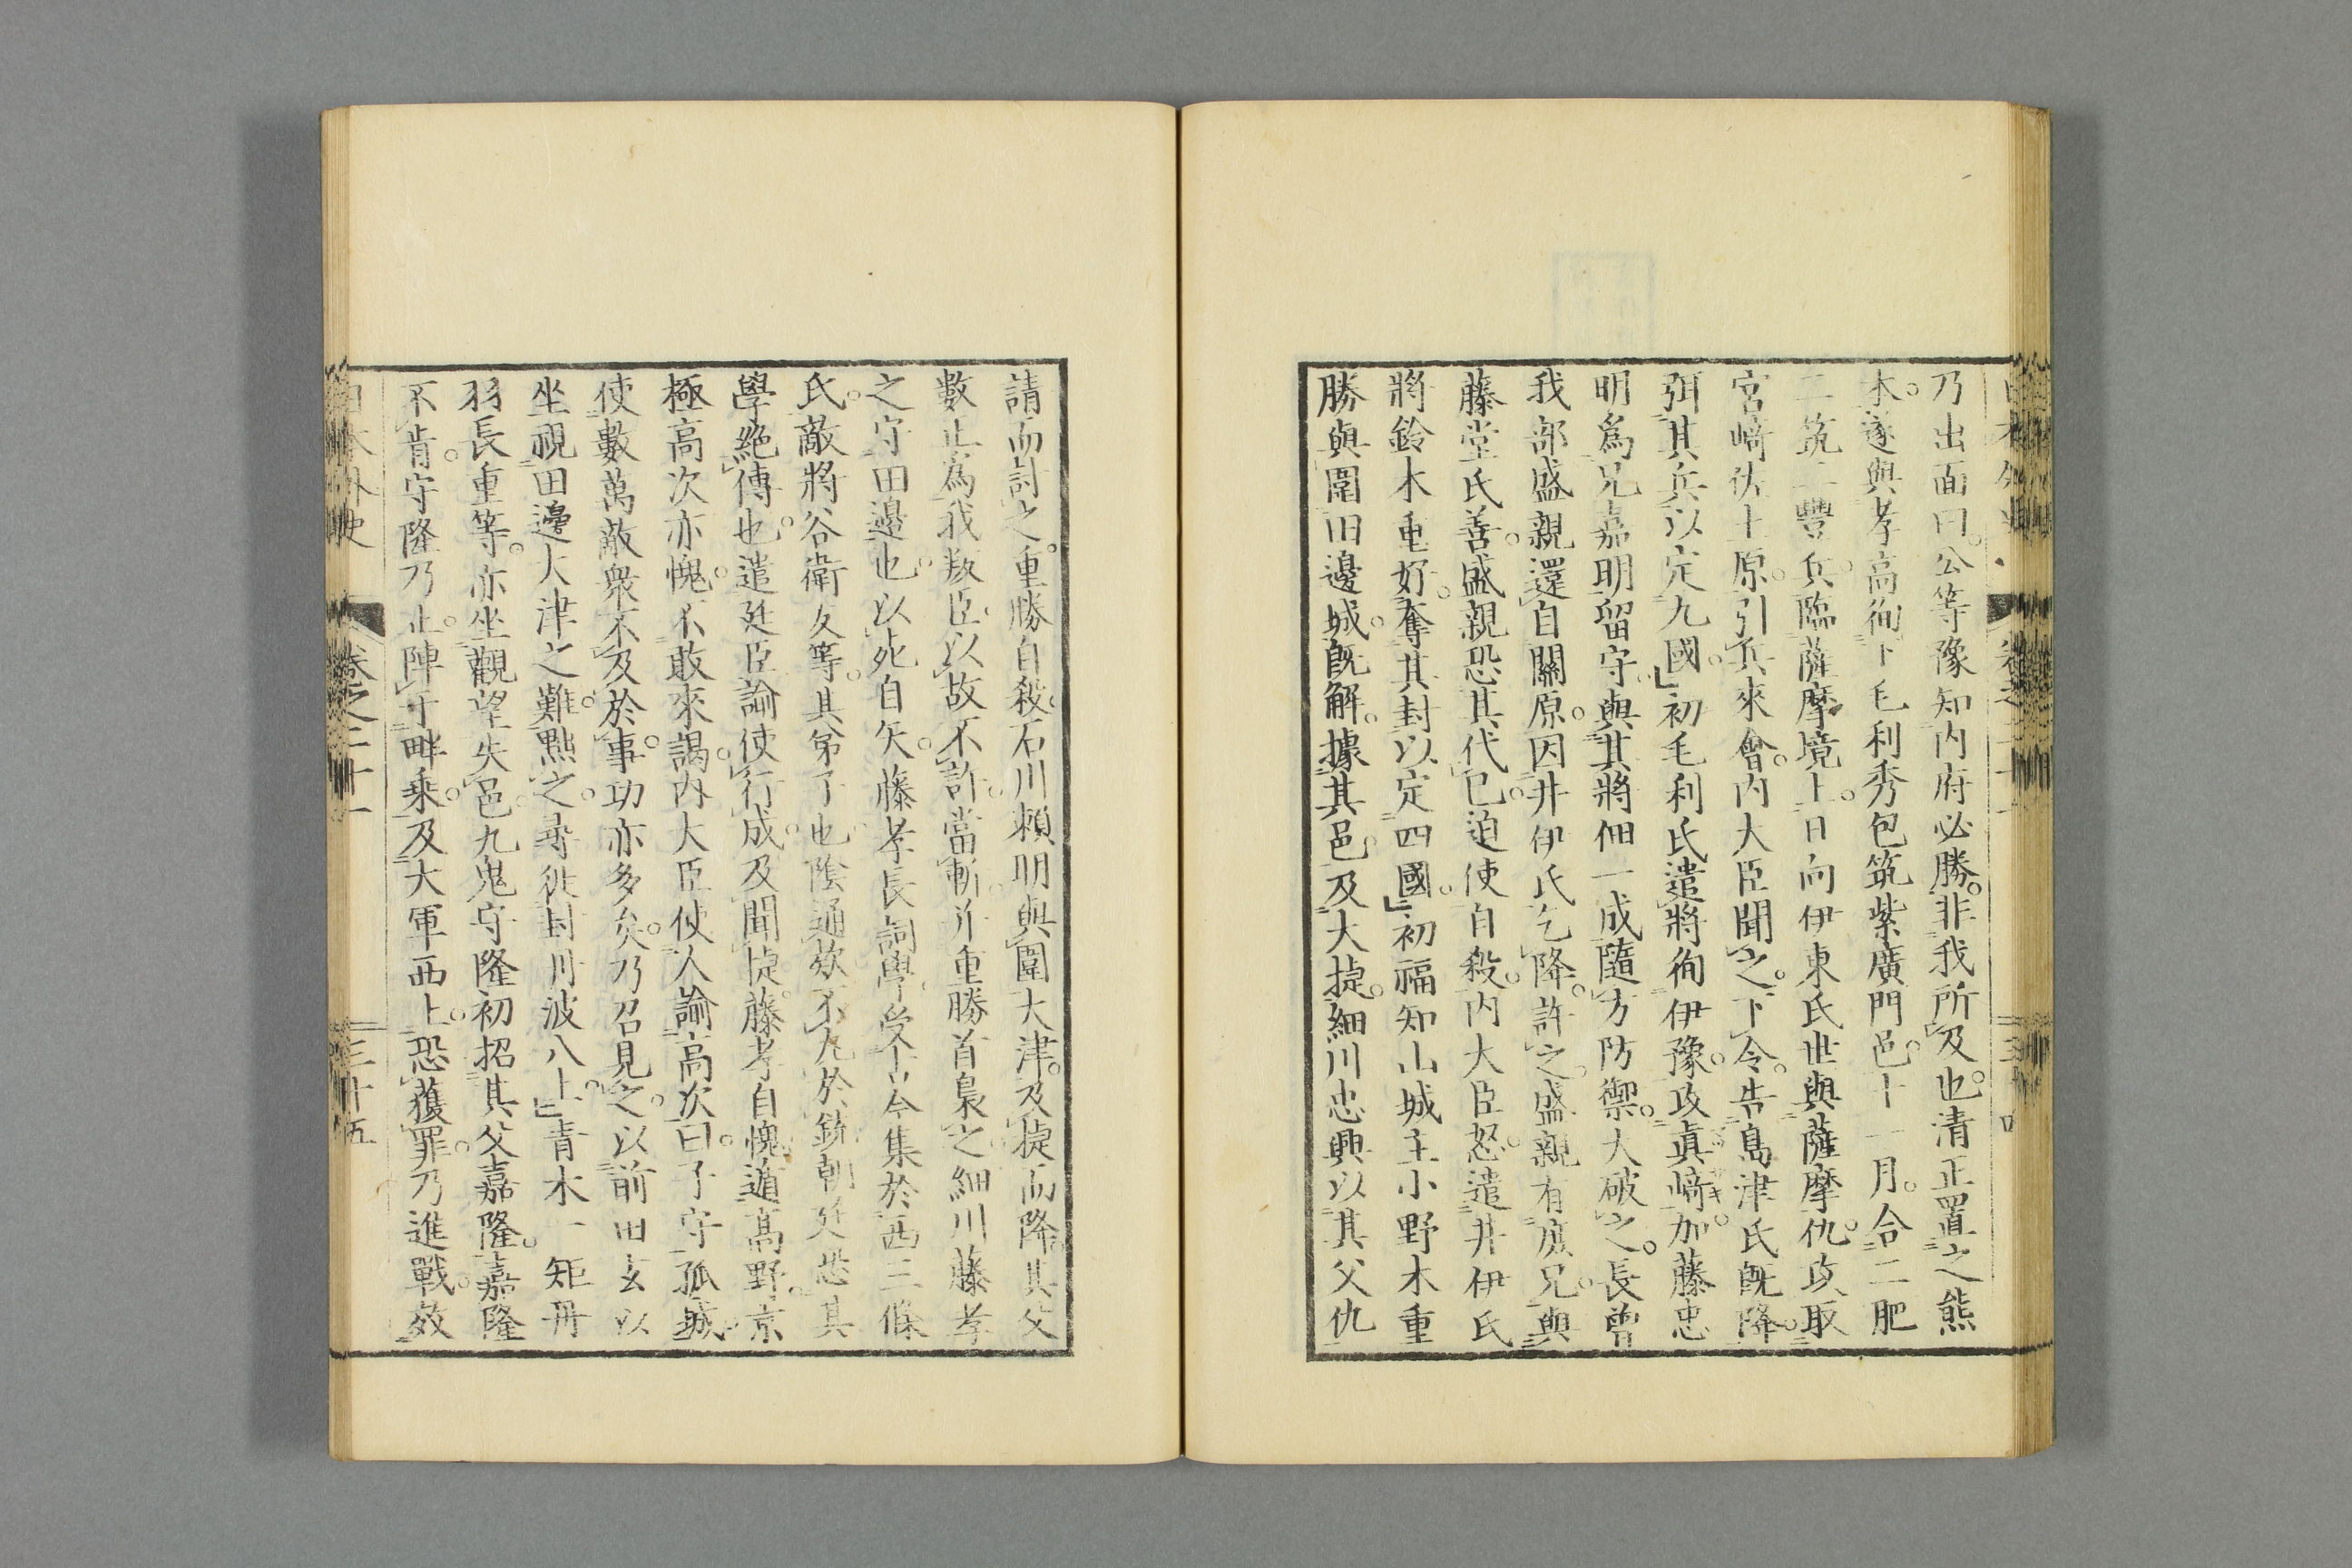 乃出面曰。公等豫知内府必勝。非我所及也。清正置之熊
本。遂與孝高徇下毛利秀包筑紫廣門邑。十一月。合二肥
二筑二豐兵。臨薩摩境上。日向伊東氏世與薩摩仇。攻取
宮﨑佐土原。引兵來會。内大臣聞之。下令。告島津氏既降。
弭其兵以定九國。」初毛利氏遣將徇伊豫。攻眞﨑。加藤忠
明爲兄嘉明留守。與其將佃一成隨方防禦。大破之。長曾
我部盛親還自關原。因井伊氏乞降。許之。盛親有庶兄。與
藤堂氏善。盛親恐其代己。迫使自殺。内大臣怒。遣井伊氏
將鈴木重好。奪其封以定四國。」初福知山城主小野木重
勝與圍田邊城。既解。據其邑。及大捷。細川忠興以其父仇
請而討之。重勝自殺。石川賴明與圍大津。及捷而降。其父
數正爲我叛臣。以故不許。當斬。并重勝首梟之。細川藤孝
之守田邊也。以死自矢。藤孝長詞學。受古今集於西三條
氏。敵將谷衛友等。其弟子也。陰通欵。不丸於銃。朝廷恐其
學絶傳也。遣廷臣諭使行成。及聞捷。藤孝自愧。遁高野。京
極高次亦愧。不敢來謁。内大臣使人諭高次曰。子守孤城。
使數萬敵衆不及於事。功亦多矣。乃召見之。以前田玄以
坐視田邊大津之難。黜之。尋徙封川波八上。」青木一矩丹
羽長重等。亦坐觀望失邑。九鬼守隆初招其父嘉隆。嘉隆
不肯。守隆乃止。陣于畔乘。及大軍西上。恐獲罪。乃進戰。效
日本外史 卷之二十一 三十五